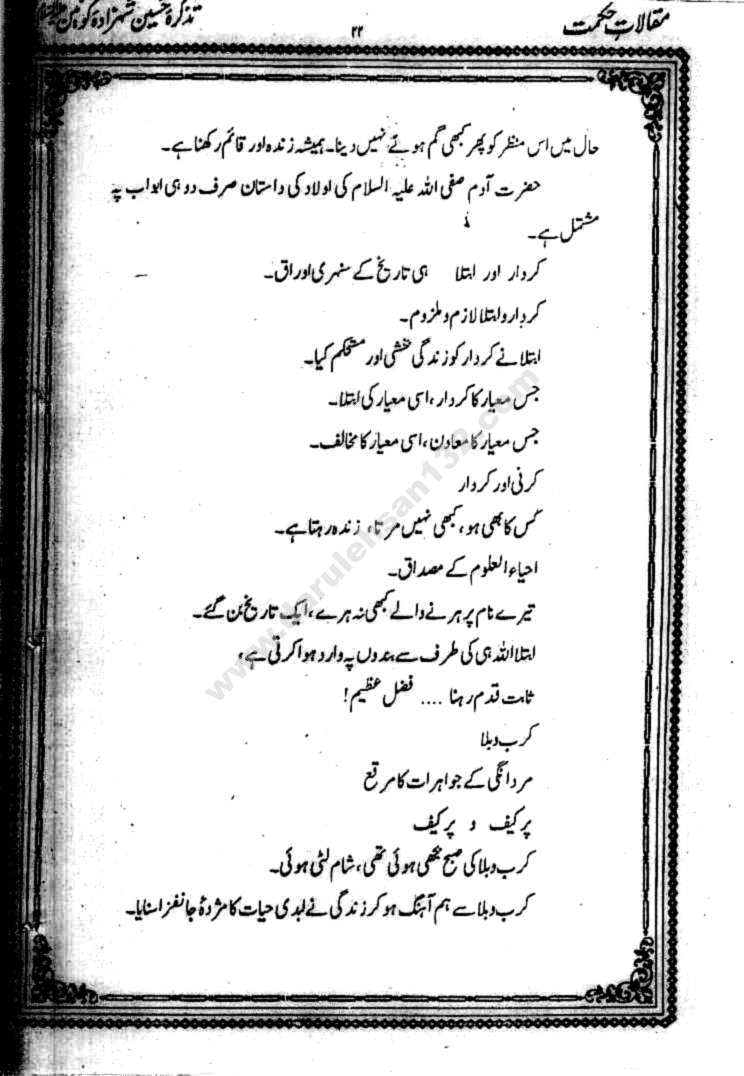 مقالاتِ حکمت
۲۲
تذکرۂ حسین شہزادہ کونین
حال میں اس منظر کو پھر کبھی گم ہونے نہیں دینا۔ ہمیشہ زندہ اور قائم رکھنا ہے۔
حضرت آدم صفی اللہ علیہ السلام کی اولاد کی داستان صرف دو ہی ابواب پہ
مشتمل ہے۔
کردار اور ابتلا ہی تاریخ کے سنہری اوراق۔
کردار و ابتلا لازم و ملزوم۔
ابتلا نے کردار کو زندگی بخشی اور مستحکم کیا۔
جس معیار کا کردار، اسی معیار کی ابتلا۔
جس معیار کا معاون، اسی معیار کا مخالف۔
کرنی اور کردار
کس کا بھی ہو، کبھی نہیں مرتا، زندہ رہتا ہے۔
احیاء العلوم کے مصداق۔
تیرے نام پر ہرنے والے کبھی نہ ہرے، ایک تاریخ بن گئے۔
ابتلا اللہ ہی کی طرف سے بندوں پہ وارد ہوا کرتی ہے،
ثابت قدم رہنا .... فضل عظیم!
کرب و بلا
مردانگی کے جواہرات کا مرقع
پرکیف و پرکیف
کرب و بلا کی صبح بجھی ہوئی تھی، شام لٹی ہوئی۔
کرب و بلا سے ہم آہنگ ہو کر زندگی نے ابدی حیات کا مژدۂ جانفزا سنایا۔
www.darulehsan132.com